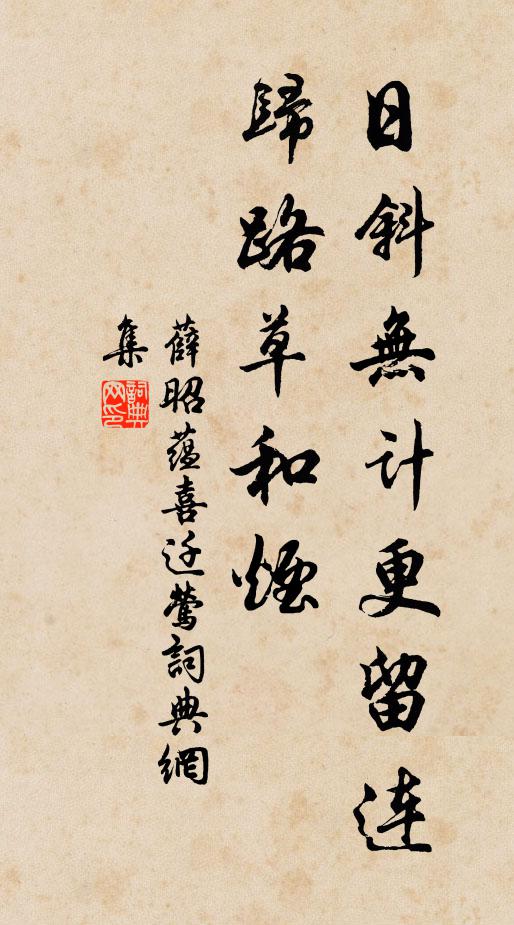 日斜無計更留連
歸路草和煙
薛昭蘊喜迁鶯詞典網
集
詞典
网印